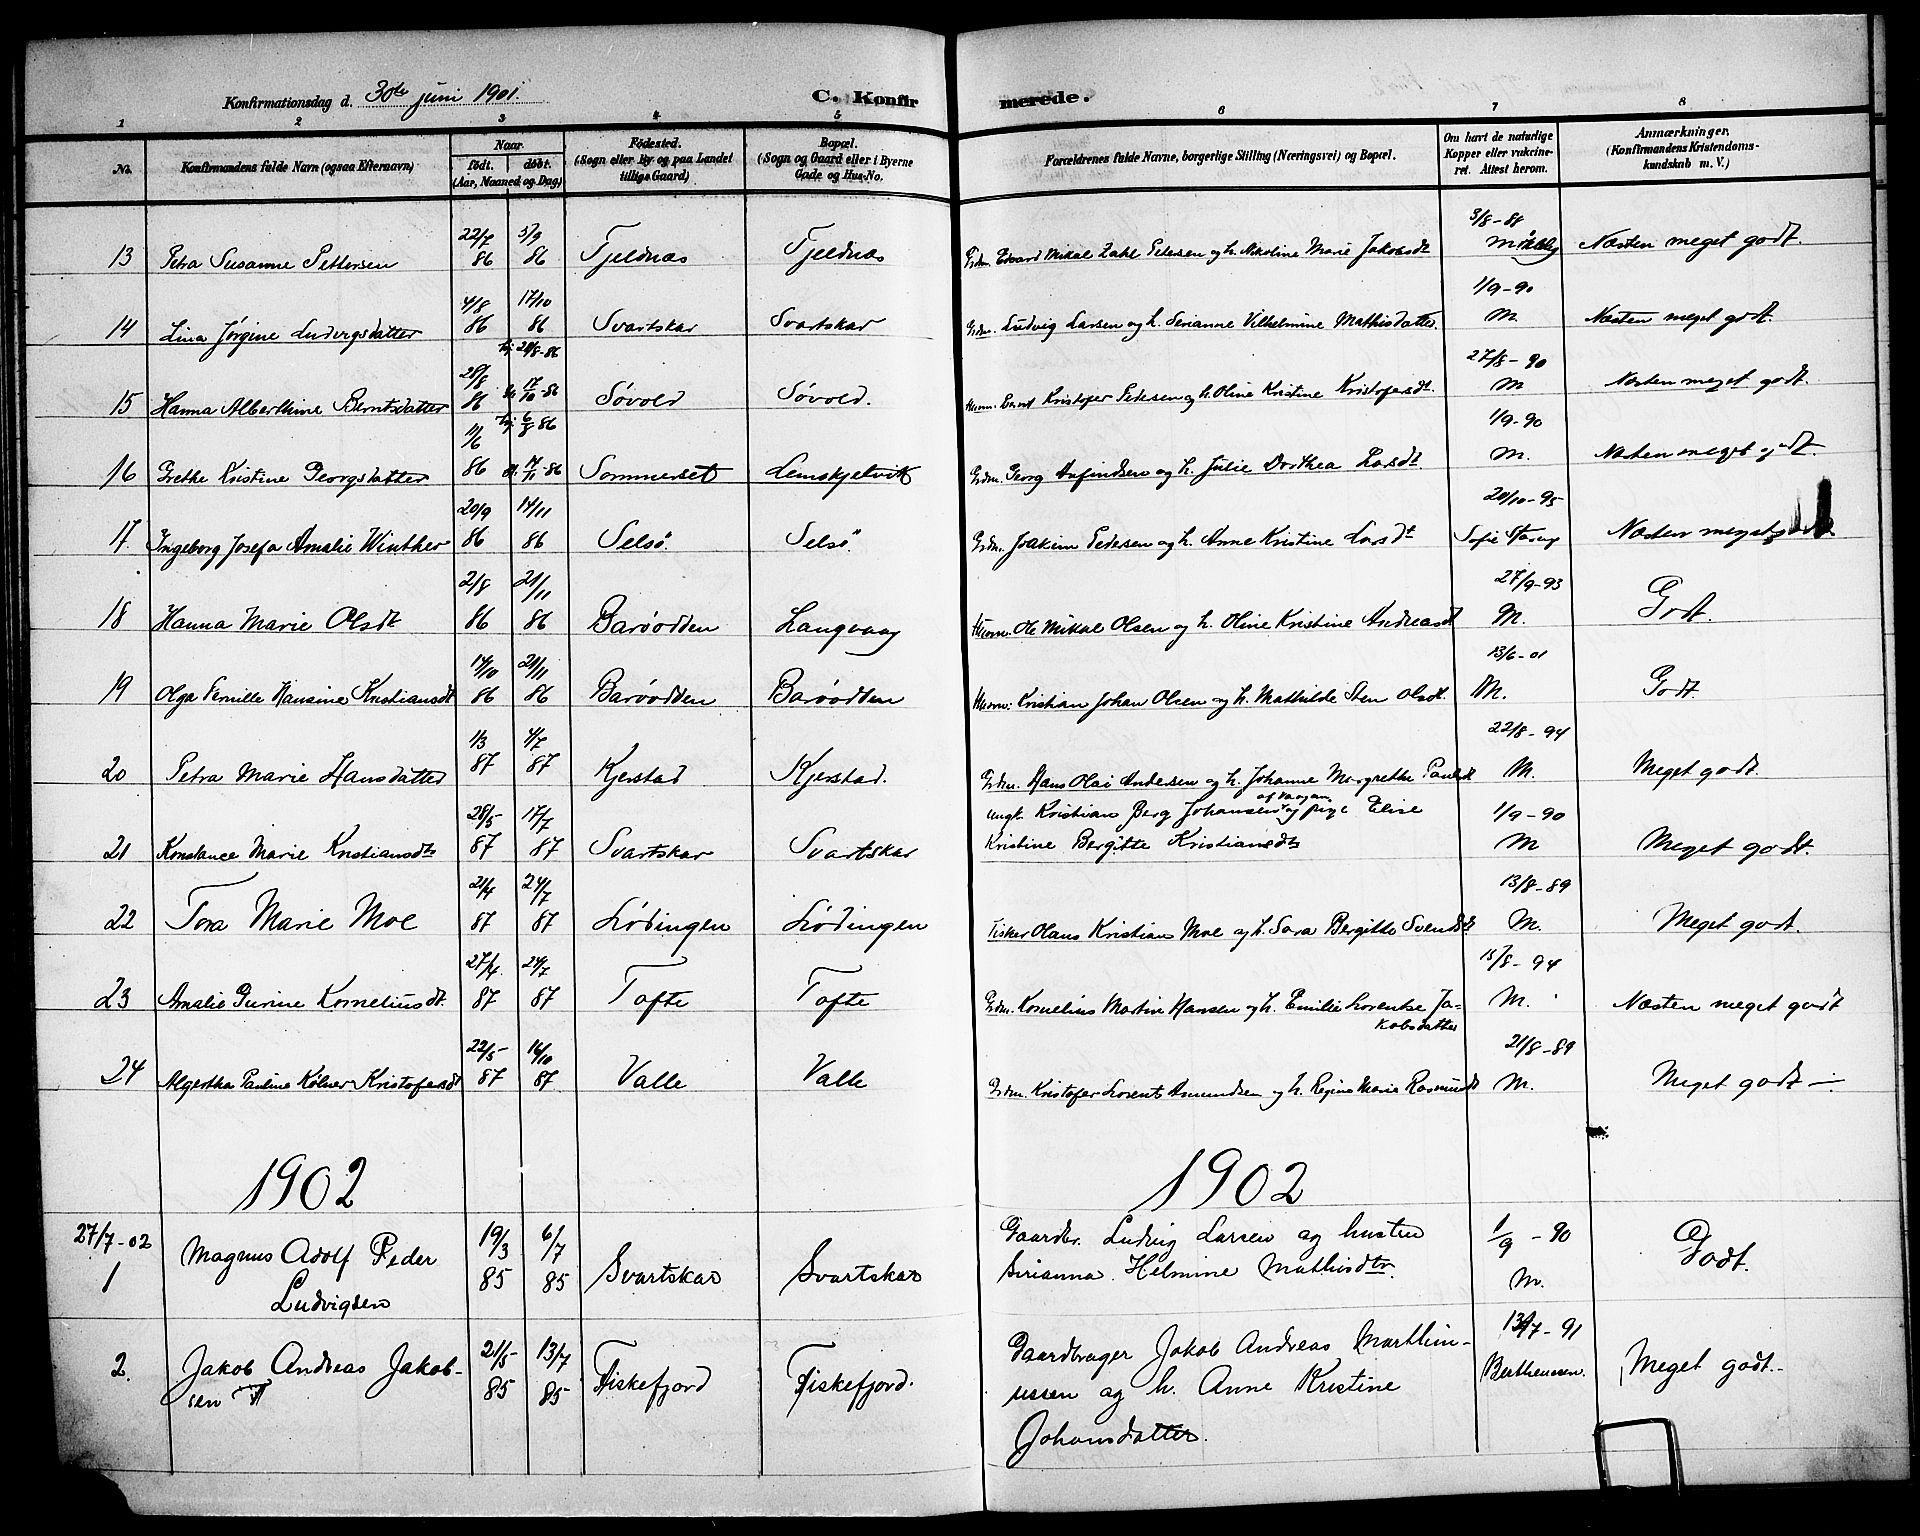 Konfirmationsdag d. 30te juni 1901. C. Konfirmerede.
1 2 3 4 5 6 7 8
No. Konfirmandens fulde Navn (ogsaa Efternavn) Naar født. døbt. (Aar, Maaned og Dag) Fødested. (Sogn eller By og paa Landet tillige Gaard) Bopæl. (Sogn og Gaard eller i Byerne Gade og Hus-No. Forældrenes fulde Navne, borgerlige Stilling (Næringsvei) og Bopæl. Om havt de naturlige Kopper eller vakcineret. Attest herom. Anmærkninger, (Konfirmandens Kristendomskundskab m. V.)
13 Petra Susanne Pettersen 22/7 86 5/9 86 Tjeldnæs Tjeldnæs Grdm. Edvard Mikal Zahl Petersen og h. Nikoline Marie Jakobsdt 3/8-88 Næsten meget godt.
14 Lina Jørgine Ludvigsdatter 4/8 86 17/10 86 Svartskar Svartskar Grdm. Ludvig Larsen og h. Serianne Vilhelmine Mathisdatter 1/9-90 M. Næsten meget godt.
15 Hanna Alberthine Berntsdatter 28/8 86 17/10-86 Søvold Søvold. Husm. Bernt Kristofer Petersen og h. Oline Kristine Kristofersdt. 27/8-90 M Næsten meget godt.
16 Grethe Kristine Georgsdatter 11/6 86 hj. 6/8 86 17/11-86 Sommerset Lemskjelvik Grdm. Georg Arfindsen og h. Julie Dorthea Larsdt 1/9-90 M. Næsten meget godt.
17. Ingeborg Josefa Amalie Winther 20/9 86 14/11 86 Selsø. Selsø. Grdm. Joakim Pedersen og h. Anne Kristine Larsdt 20/10-95 Næsten meget godt
18 Hanna Marie Olsdt 2/8 86 21/11 86 Barøodden Langvaag Husm. Ole Mikal Olsen og h. Oline Kristine Andreasdt 27/9-93 M. Godt.
19 Olga Pernille Hansine Kristiansdt 14/10 86 21/11 86 Barøodden Barøodden Husm. Kristian Johan Olsen og h. Mathilde Sten Olsdt. 13/6-01 M. Godt
20 Petra Marie Hansdatter 1/3 87 4/7 87 Kjerstad Kjerstad. Grdm. Hans Olai Andersen og h. Johanne Margrethe Paulsdt 22/8-94 M. Meget godt.
21 Konstance Marie Kristiansdtr 28/5 87 17/7 87 Svartskar Svartskar Ungk. Kristian Berg Johansen af Vaagan og pige Elise
Kristine Bergitte Kristiansdtr 1/9-90 M Meget godt.
22 Tora Marie Moe 21/4 87 24/7 87 Lødingen Lødingen Fisker Olaus Kristian Moe og h. Sara Bergitte Svendsdt 13/8-89 M. Meget godt.
23 Amalie Gurine Korneliusdt. 27/4. 87 24/7 87 Tofte Tofte Grdm. Kornelius Martin Hansen og h. Emilie Lorentse Ja-
kobsdatter 15/8-94 M. Næsten meget godt
24 Algertha Pauline Kølner Kristofersdt 22/5- 87 16/10 87 Valle Valle Grdm. Kristofer Lorents Amundsen og h. Regine Marie Rasmusdt 21/8-89 M. Meget godt —
1902 1902
27/7-02
1 Magnus Adolf Peder
Ludvigsen 19/3 85 6/7 85 Svartskar Svartskar Gaardbr. Ludvig Larsen og hustru
Serianna Helmine Mathisdtr. 1/9-90 M. Godt.
2. Jakob Andreas Jakob-
sen 21/5- 85 13/7 85 Fiskefjord Fiskefjord. Gaardbruger Jakob Andreas Marthin-
ussen og h. Anne Kristine
Johansdatter. 13/7-91 Bertheussen. Meget godt.